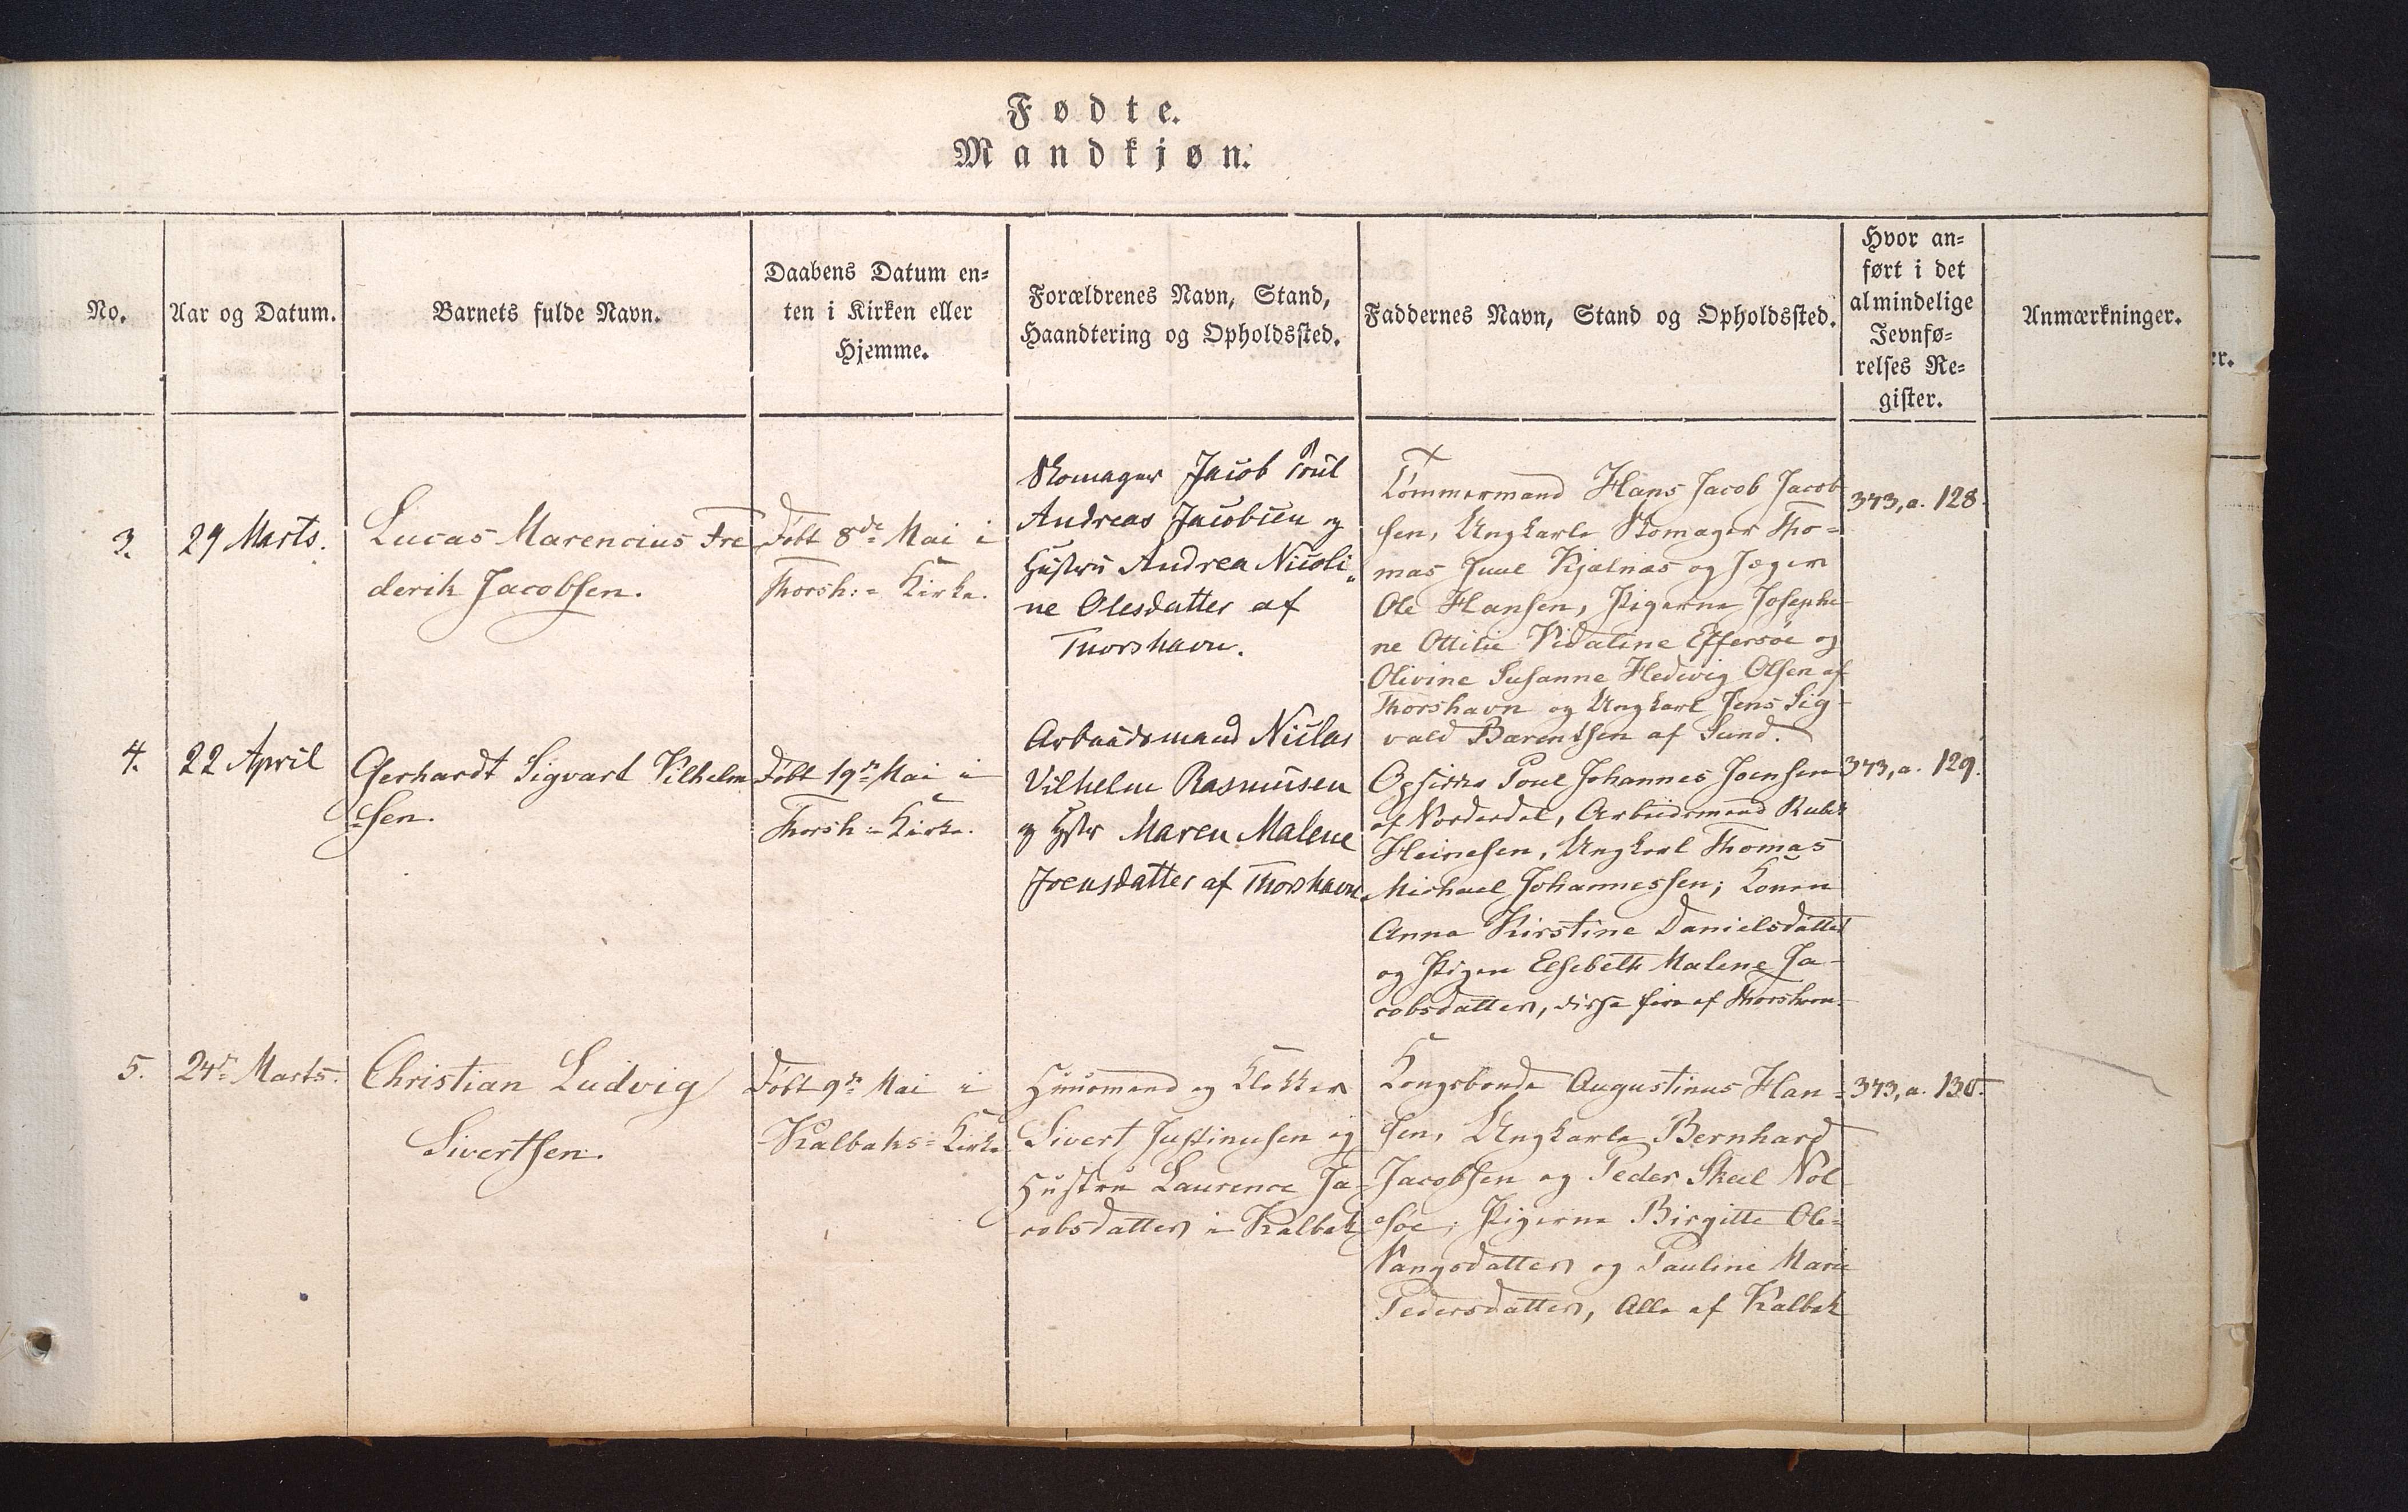 Fødte.
Mandkjøn.
No.
Aar og Datum.
Barnets fulde Navn.
Daabens Datum en-
ten i Kirken eller
Hjemme.
Forældrenes Navn, Stand,
Haandtering og Opholdssted.
Faddernes Navn, Stand og Opholdssted.
Hvor an-
ført i det
almindelige
Jevnfø-
relses Re-
gister.
Anmærkninger.
er.
3.
29 Marts.
Lucas Marencius Fre
derik Jacobsen.
Døbt 8de Mai i
Thorsh:s Kirke.
Skomager Jacob Poul
Andreas Jacobsen og
Hustru Andrea Nicoli-
ne Olesdatter af
Thorshavn.
Tømmermand Hans Jacob Jacob
sen, Ungkarle Skomager Tho-
mas Juul Kjalnæs og Jæger
Ole Hansen, Pigerne Josephi-
ne Ottilie Vidaline Effersøe og
Olivine Susanne Hedevig Olsen af
Thorshavn og Ungkarl Jens Sig-
vald Barentsen af Sund.
343, a. 128.
4.
22 April
Gerhardt Sigvart Vilhelm
sen.
Døbt 19de Mai i
Thorsh:s Kirke.
Arbeidsmand Niclas
Vilhelm Rasmusen
og Hstr Maren Malene
Joensdatter af Thorshavn.
Opsidder Poul Johannes Joensen
af Norderdal, Arbeidsmand Rubek
Heinesen, Ungkarl Thomas
Michael Johannessen; Konen
Anna Kirstine Danielsdatter
og Pigen Elsebeth Malene Ja-
cobsdatter, disse fire af Thorshavn.
343, a. 129.
5.
24de Marts.
Christian Ludvig
Sivertsen.
Døbt 9de Mai i
Kalbaks-Kirke
Huusmand og Klokker
Sivert Justinusen og
Hustru Laurence Ja-
cobsdatter i Kalbak
Kongsbonde Augustinus Han-
sen, Ungkarle Bernhard
Jacobsen og Peder Skeel Nol-
søe, Pigerne Birgitte Ole-
Vangsdatter og Pauline Marie
Pedersdatter, Alle af Kalbak
343, a. 130.